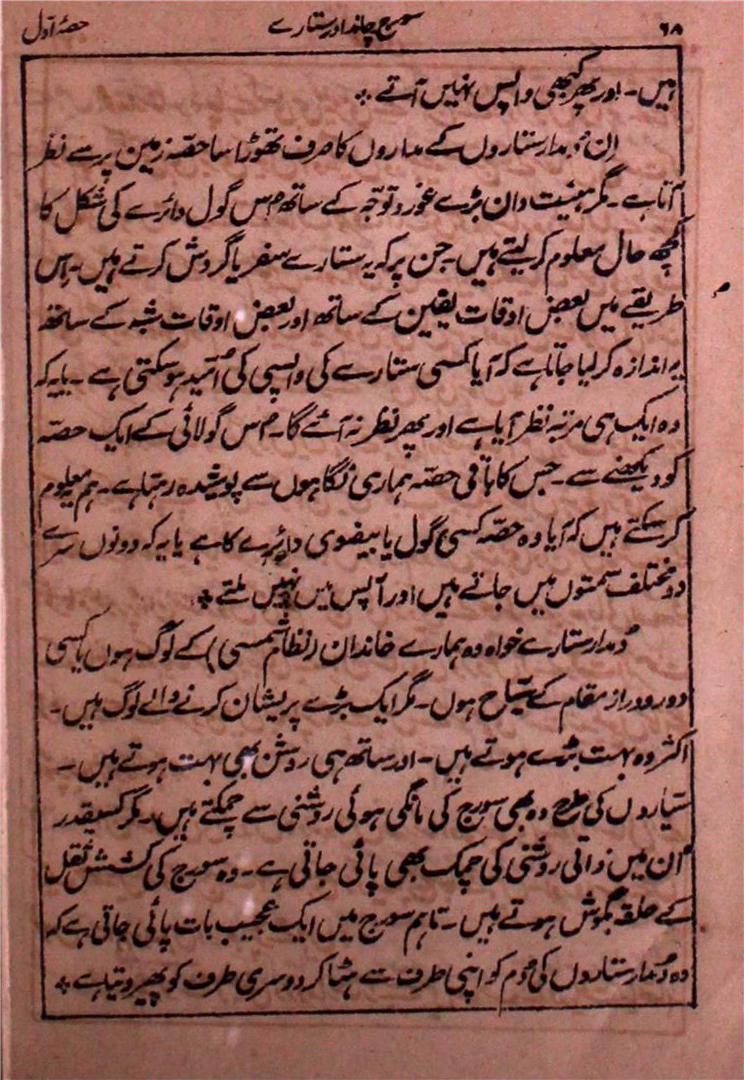 ۶۸ سورج چاند اور ستارے حصۂ اوّل
ہیں۔ اور پھر کبھی واپس نہیں آتے ٭
اِن دُمدار ستاروں کے مداروں کا صرف تھوڑا سا حصّہ زمین پر سے نظر
آتا ہے۔ مگر ہیئیت دان بڑے غور و توجّہ کے ساتھ اُس گول دائرے کی شکل کا
کچھ حال معلوم کر لیتے ہیں۔ جن پر کہ یہ ستارے سفر یا گردش کرتے ہیں۔ اِس
طریقے میں بعض اوقات یقین کے ساتھ اور بعض اوقات شبہ کے ساتھ
یہ اندازہ کر لیا جاتا ہے کہ آیا کسی ستارے کی واپسی کی اُمید ہوسکتی ہے۔ یا یہ کہ
وہ ایک ہی مرتبہ نظر آیا ہے اور پھر نظر نہ آئے گا۔ اُس گولائی کے ایک حصّہ
کو دیکھنے سے۔ جس کا باقی حصّہ ہماری نگاہوں سے پوشیدہ رہتا ہے۔ ہم معلوم
کرسکتے ہیں کہ آیا وہ حصّہ کسی گول یا بیضوی دائرے کا ہے یا یہ کہ دونوں سرے
دو مختلف سمتوں میں جاتے ہیں اور آپس میں نہیں ملتے ٭
دُمدار ستارے خواہ وہ ہمارے خاندان (نظام شمسی) کے لوگ ہوں یا کسی
دور دراز مقام کے سیّاح ہوں۔ مگر ایک بڑے پریشان کرنے والے لوگ ہیں۔
اکثر وہ بہت بڑے ہوتے ہیں۔ اور ساتھ ہی روشن بھی بہت ہوتے ہیں۔
سیّاروں کی طرح وہ بھی سورج کی مانگی ہوئی روشنی سے چمکتے ہیں۔ مگر کسیقدر
اُن میں ذاتی روشنی کی چمک بھی پائی جاتی ہے۔ وہ سورج کی کشش ثقل
کے حلقہ بگوش ہوتے ہیں۔ تاہم سورج میں ایک عجیب بات پائی جاتی ہے کہ
وہ دُمدار ستاروں کی دُم کو اپنی طرف سے ہٹا کر دوسری طرف کو پھیر دیتا ہے ٭